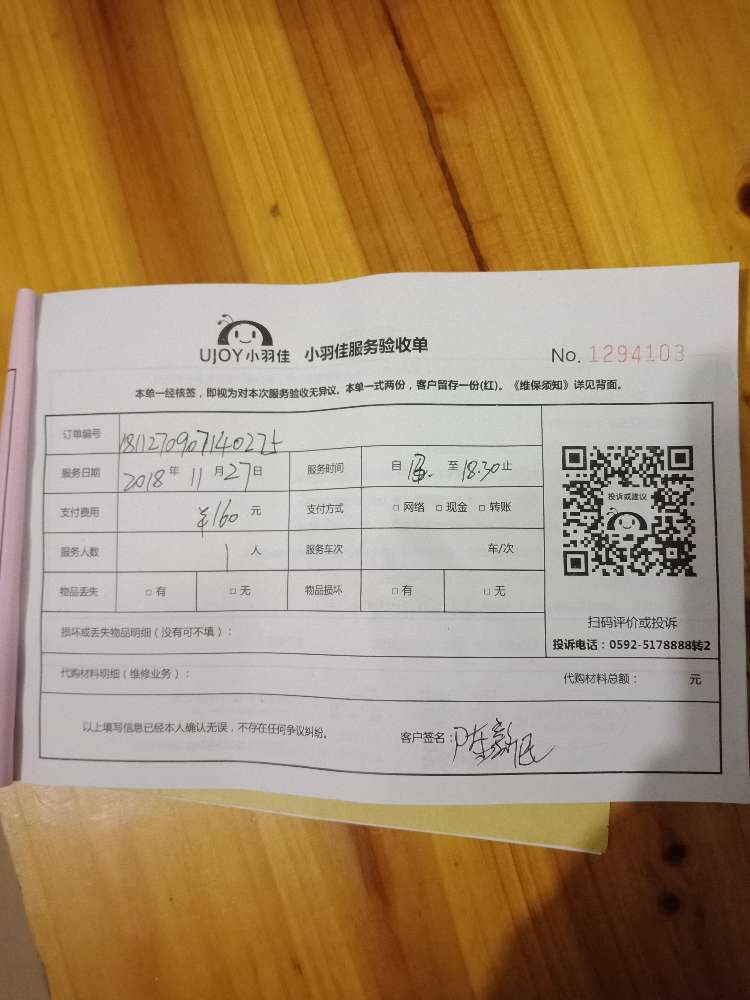 UJOY小羽佳 小羽佳服务验收单 No. 1294103
本单一经核签，即视为对本次服务验收无异议。本单一式两份，客户留存一份(红)。《维保须知》详见背面。
订单编号 1811270907140225
服务日期 2018年 11月27日 服务时间 自 至 18:30止
支付费用 ¥160 元 支付方式 □ 网络 □ 现金 □ 转账
服务人数 1 人 服务车次 车/次
物品丢失 □ 有 □ 无 物品损坏 □ 有 □ 无
投诉或建议
扫码评价或投诉
投诉电话：0592-5178888转2
损坏或丢失物品明细（没有可不填）：
代购材料明细（维修业务）： 代购材料总额： 元
以上填写信息已经本人确认无误，不存在任何争议纠纷。 客户签名：陈